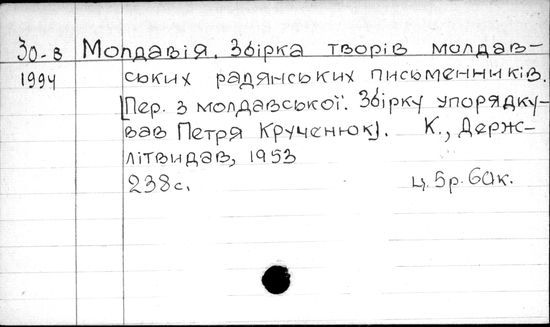 30-в Молдавія. Збірка творів молдав-
1994 ських радянських письменників.
[Пер. з молдавської. Збірку упорядку-
вав Петря Крученюк]. К., Держ-
літвидав, 1953
238с. ц. 5р. 60к.